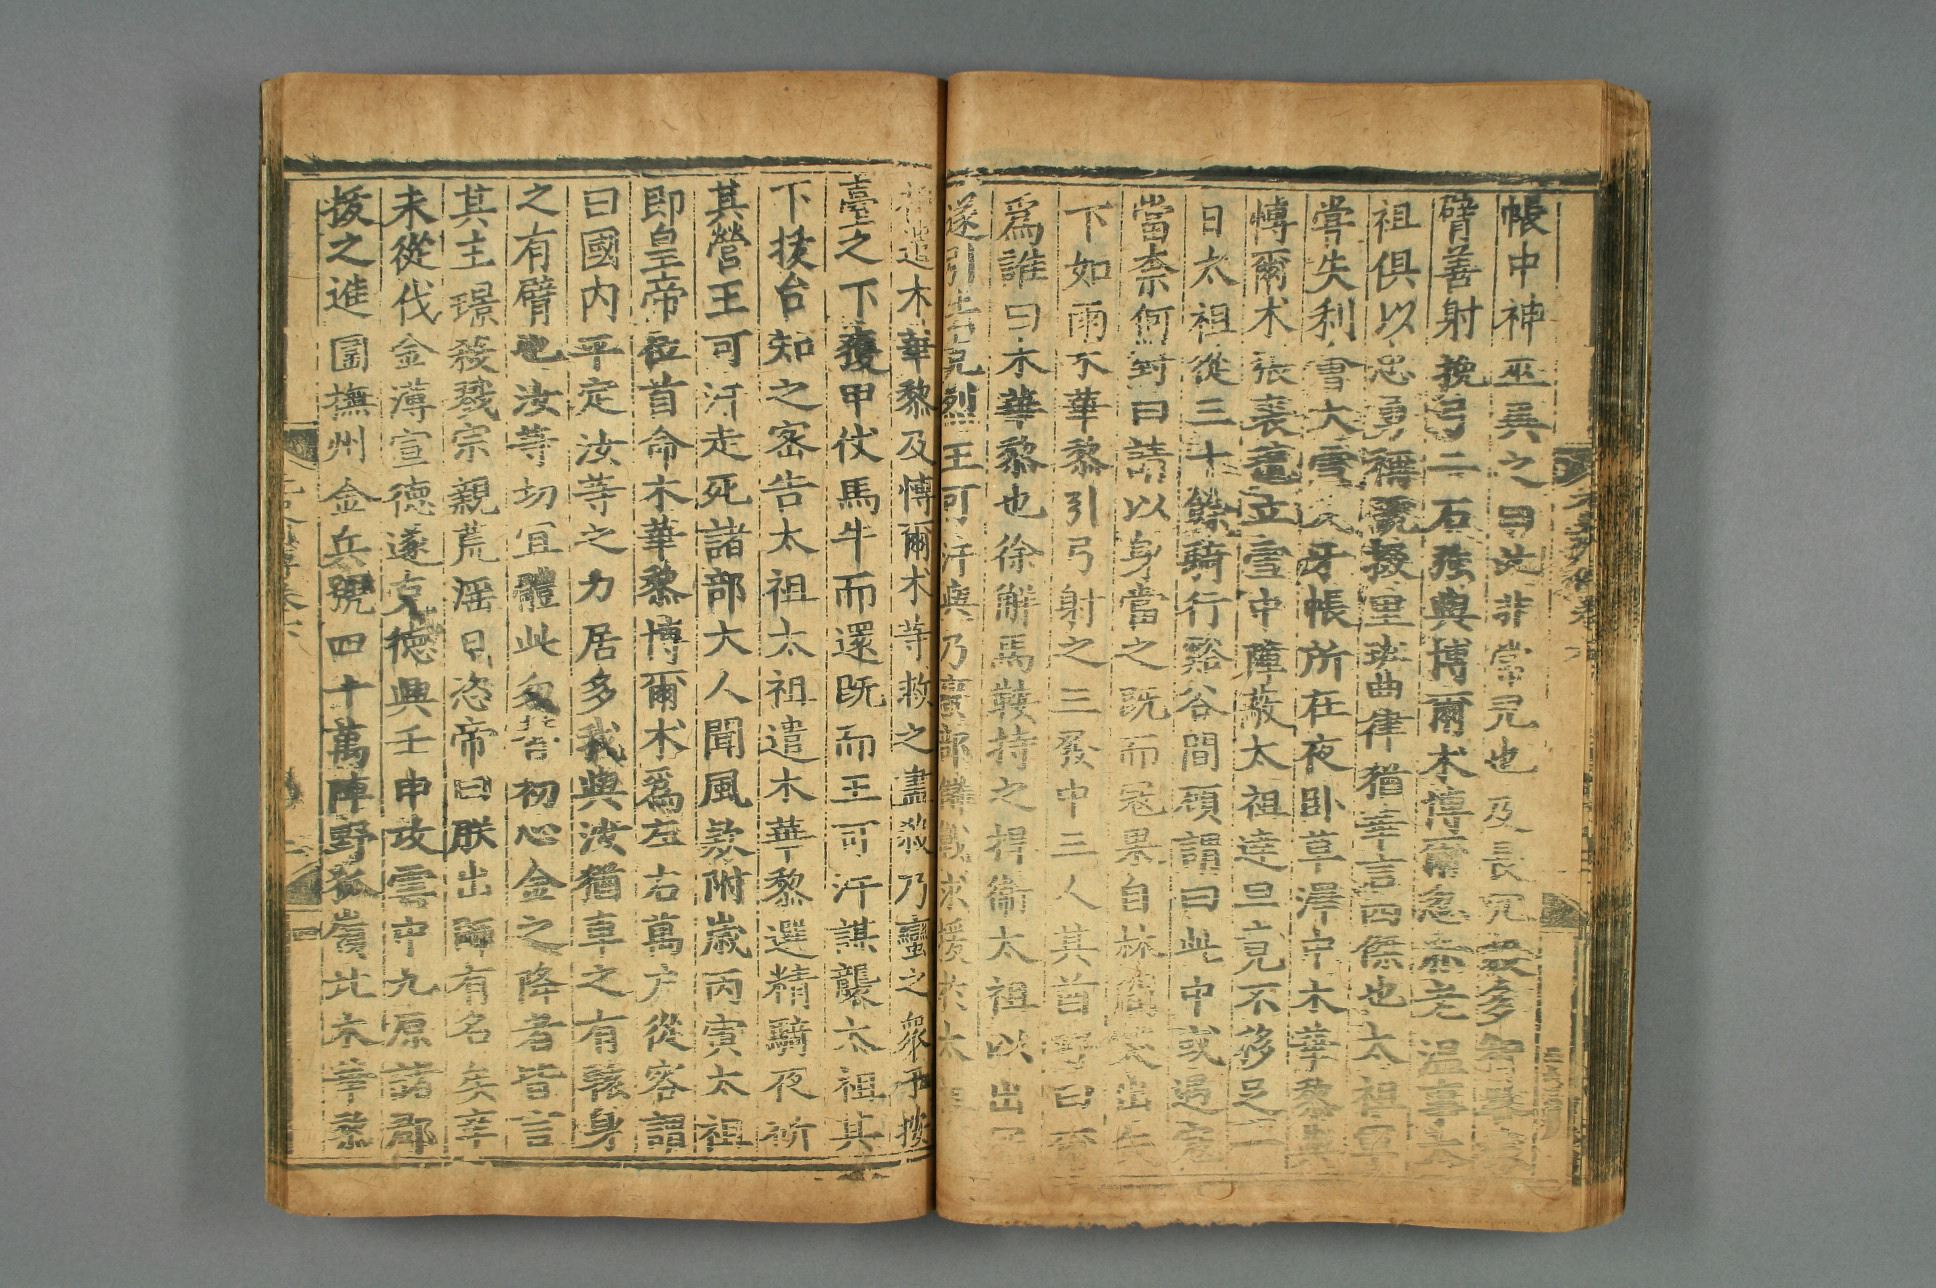 帳中神巫異之曰此非常兒也及長沉毅多智畧猿
臂善射挽弓二石強與博爾术博爾忽赤老温事太
祖俱以忠勇稱號掇里班曲律猶華言四傑也太祖軍
嘗失利會大雪失牙帳所在夜卧草澤中木華黎與
博爾术張裘氊立雪中障蔽太祖達旦竟不移足一
日太祖從三十餘騎行谿谷間顧謂曰此中或遇寇
當柰何對曰請以身當之既而寇果自林間突出矢
下如雨木華黎引弓射之三發中三人其酋呼曰爾
爲誰曰木華黎也徐解馬鞍持之捍衛太祖以出
遂引去克烈王可汗與乃蠻部讎戰求援於太祖
遣木華黎及博爾术等救之盡殺乃蠻之衆于按
臺之下獲甲仗馬牛而還既而王可汗謀襲太祖其
下拔台知之密告太祖太祖遣木華黎選精騎夜斫
其營王可汗走死諸部大人聞風款附歲丙寅太祖
即皇帝位首命木華黎博爾术爲左右萬戶從容謂
曰國內平定汝等之力居多我與汝猶車之有轅身
之有臂也汝等切宜體此勿替初心金之降者皆言
其主璟殺戮宗親荒淫日恣帝曰朕出師有名矣辛
未從伐金薄宣德遂克德興壬申攻雲中九原諸郡
拔之進圍撫州金兵號四十萬陣野狐嶺北木華黎